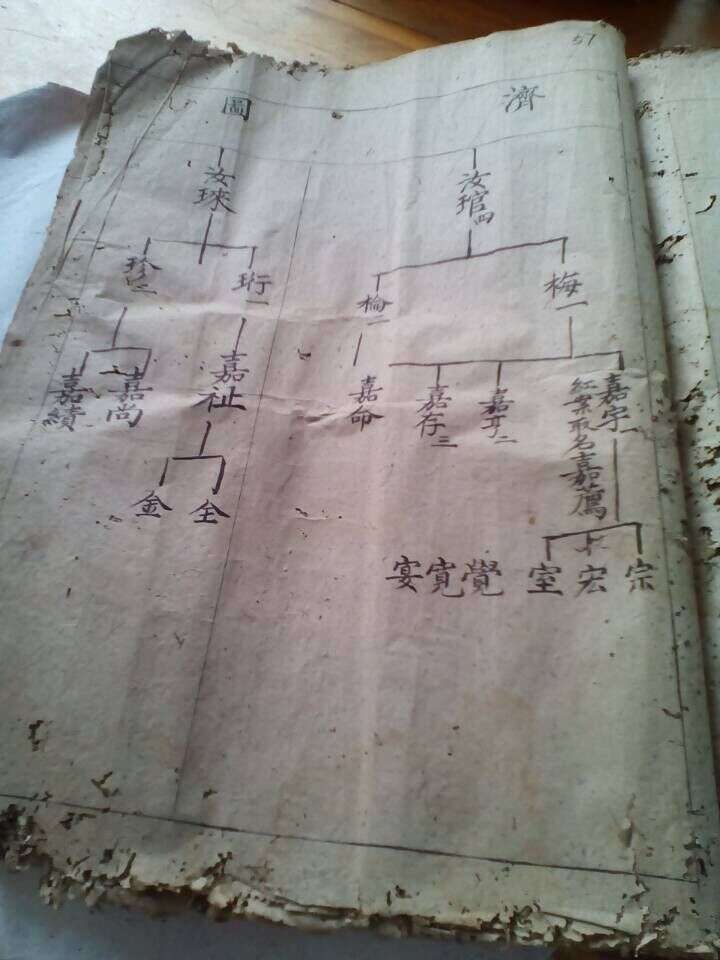 57
濟
圖
汝琯四
梅一
楡二
嘉宇一
紅案取名嘉薦
嘉亨二
嘉存三
嘉命
宗
宏
室
覺
寬
宴
汝琜
珩一
珍二
嘉祉
嘉尚
嘉績
全
金